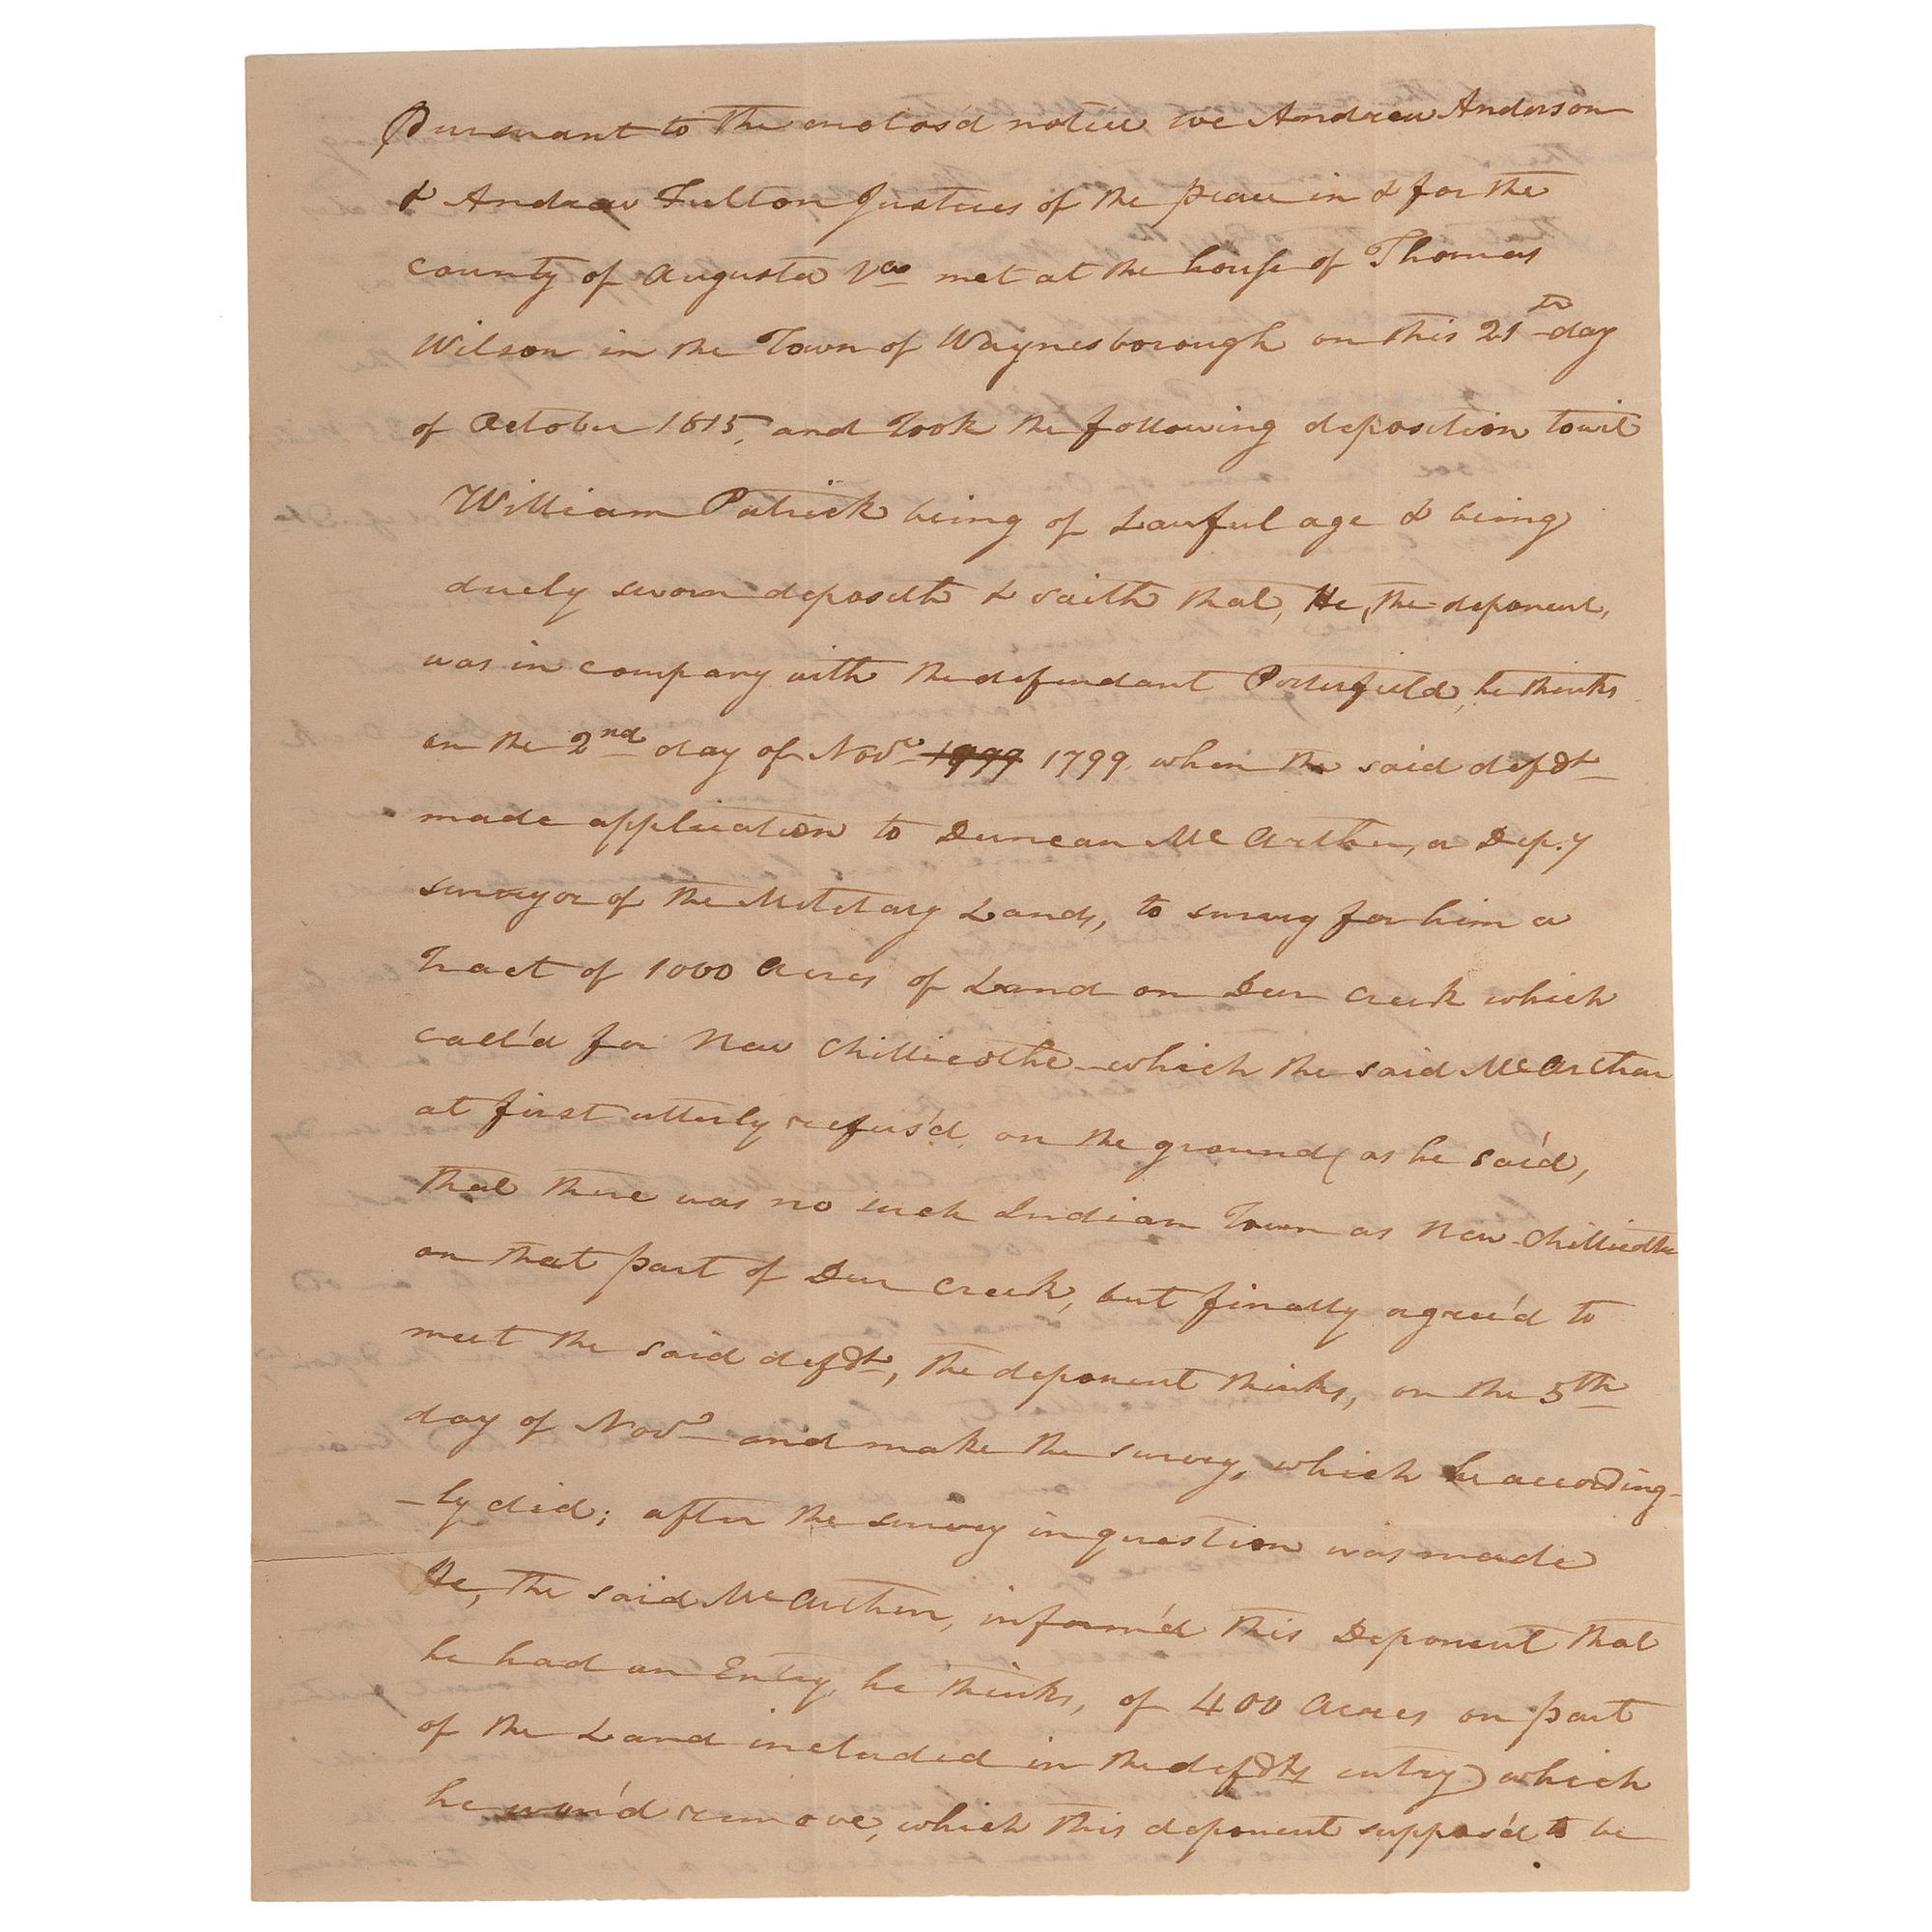 Pursuant to the enclos'd notice we Andrew Anderson
& Andrew Fulton Justices of the peace in & for the
county of Augusta Va met at the house of Thomas
Wilson in the Town of Waynesborough on this 21th day
of October 1815, and took the following deposition towit
William Patrick being of Lawful age & being
duely sworn deposeth & saith that, He, the deponent,
was in company with the defendant Porterfield, he thinks
on the 2nd day of Novr 1799 1799 when the said defdt
made application to Duncan McArthur, a Dep.y
surveyor of the Military Lands, to survey for him a
Tract of 1000 Acres of Land on Deer Creek which
call'd for New Chillicothe which the said McArthur
at first utterly refus'd, on the ground (as he said,
that there was no such Indian Town as New Chillicothe
on that part of Deer Creek, but finally agree'd to
meet the said defdt, the deponent thinks, on the 5th
day of Novr and make the survey, which he according-
-ly did; after the survey in question was made
He, the said McArthur, inform'd this Deponent that
he had an Entry, he thinks, of 400 Acres on part
of the Land included in the defdts entry) which
he wou'd remove, which this deponent suppos'd to be